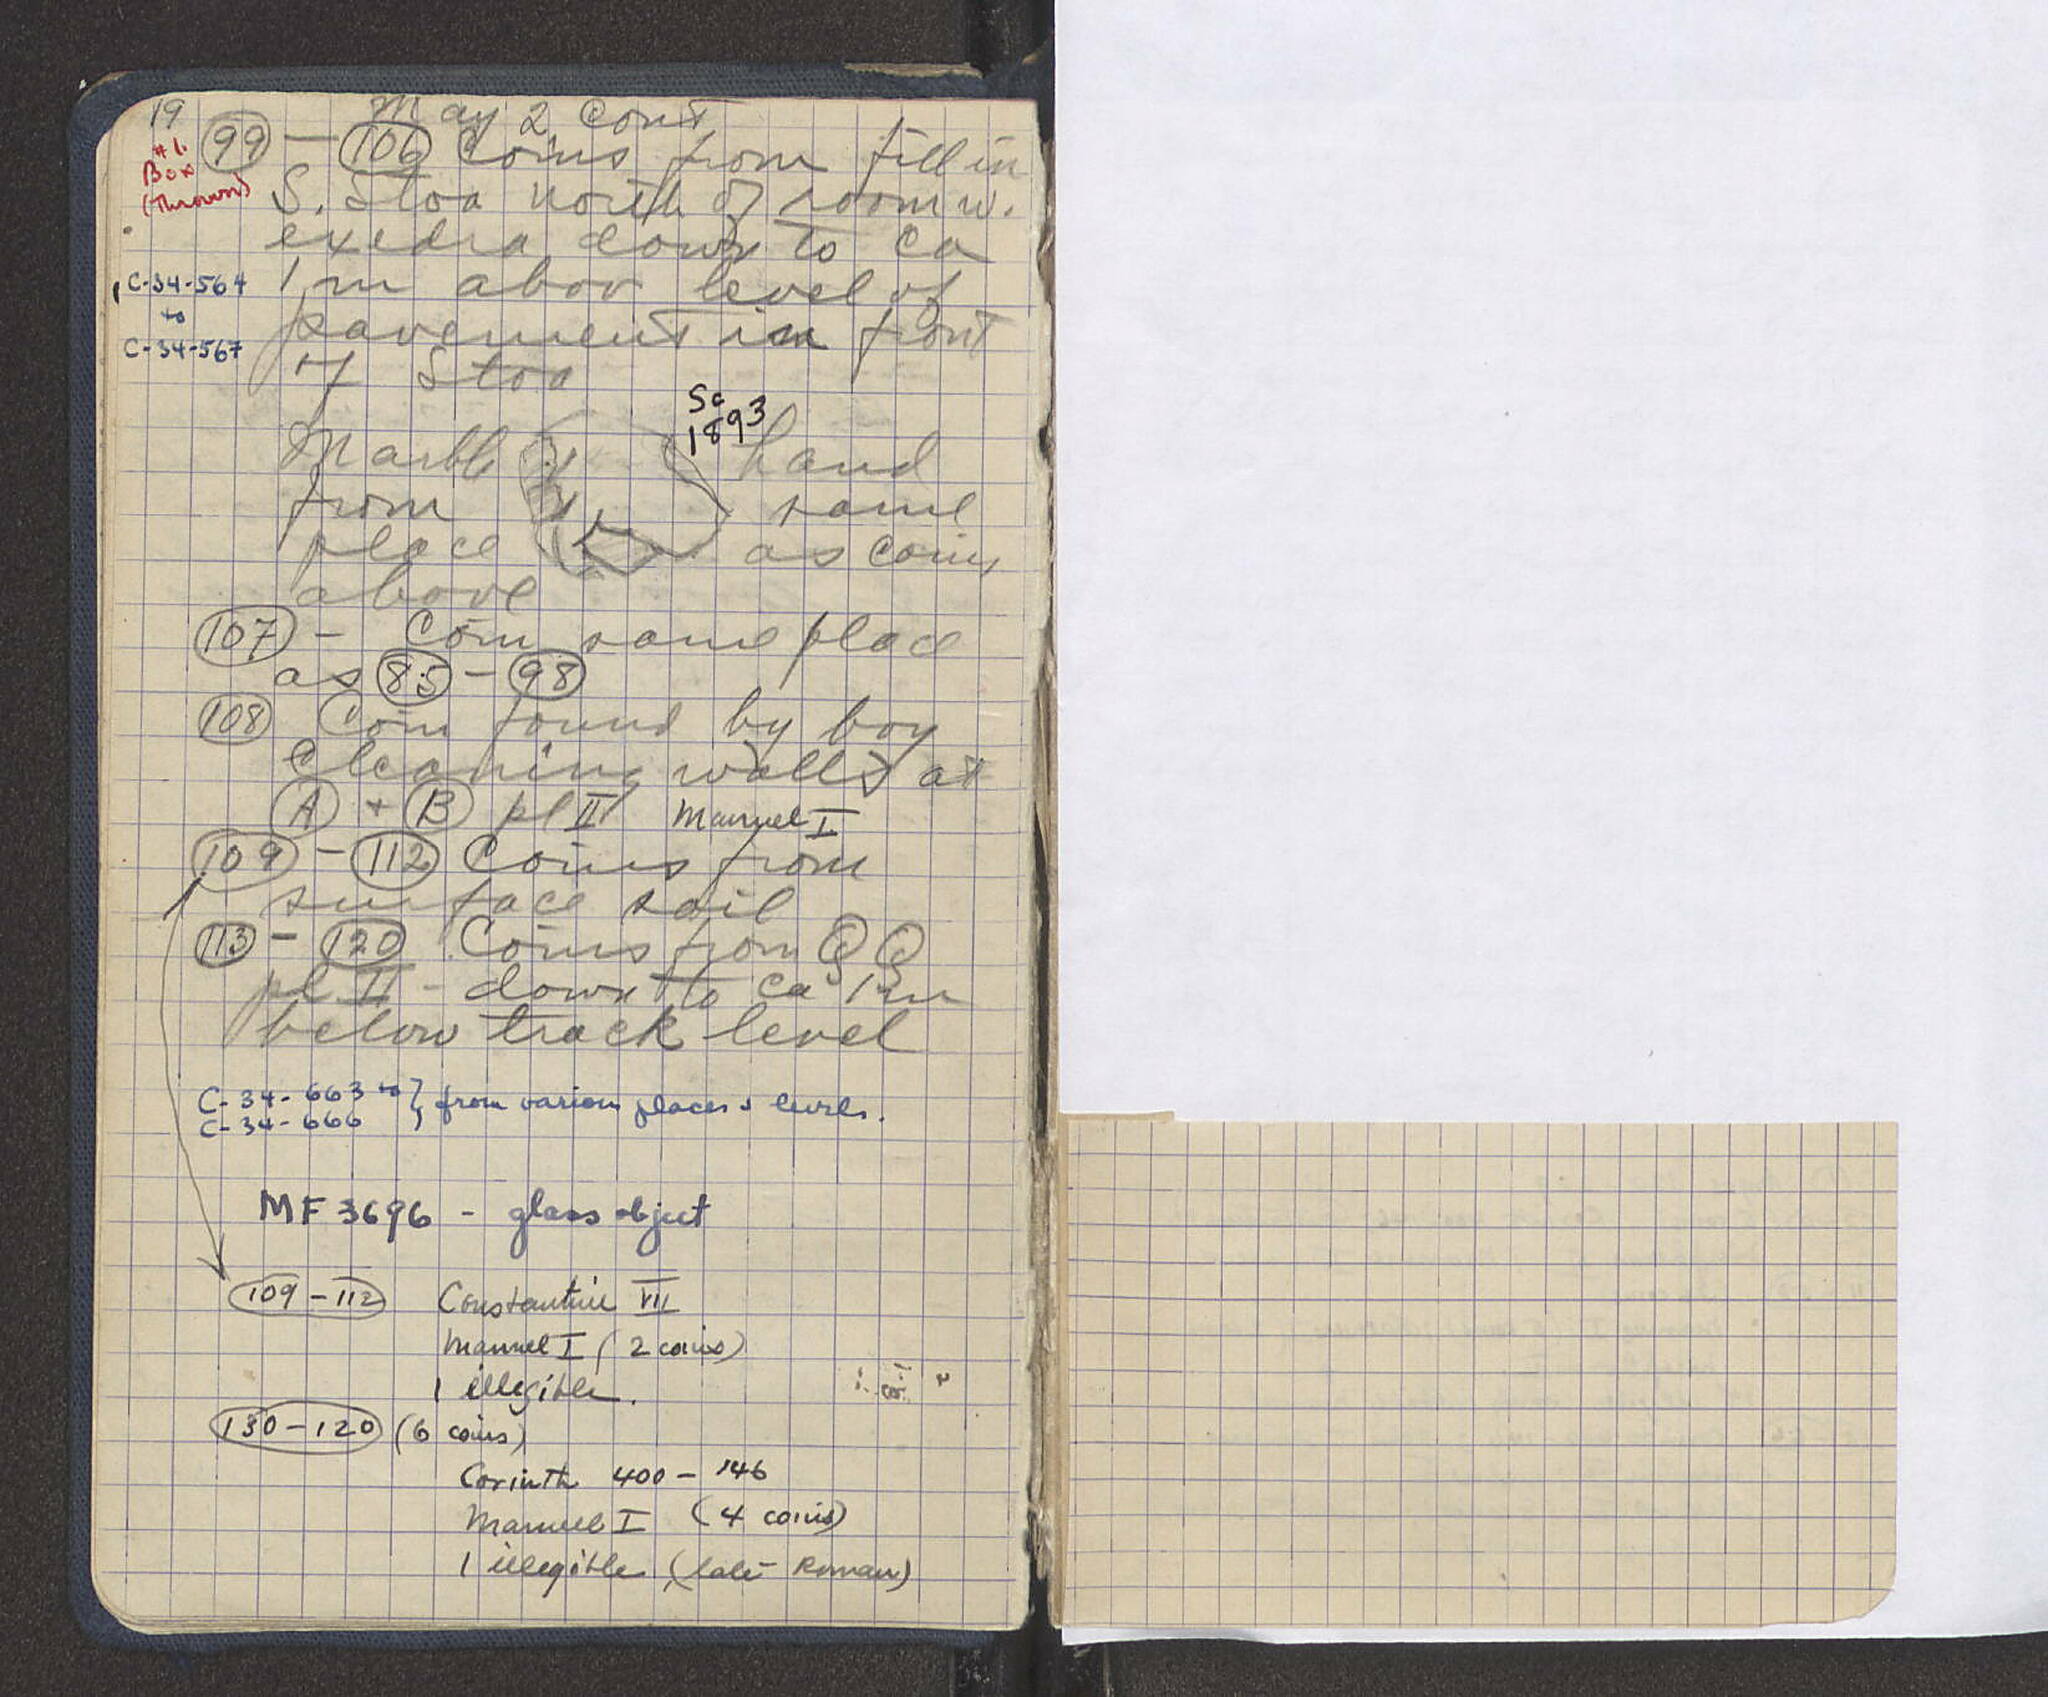 19
May 2 Cont
#1.
Box
(Thrown)
99 — 106 Coins from fill in
S. Stoa north of room w.
exedra down to ca
1 m abov level of
pavement in front
of Stoa
C-34-564
to
C-34-567
Sc
1893
Marble hand
from same
place as coins
above
107 - Coin same place
as 85 - 98
108 Coin found by boy
cleaning walls at
A + B pl II Manuel I
109 - 112 Coins from
surface soil
113 - 120 Coins from Q Q
pl. II - down to ca 1 m
below track level
C-34-663 to } from various places & levels.
C-34-666
MF 3696 - glass object
109 - 112 Constantine VII
Manuel I (2 coins)
1 illegible.
130 - 120 (6 coins)
Corinth 400 - 146
Manuel I (4 coins)
1 illegible (late Roman)